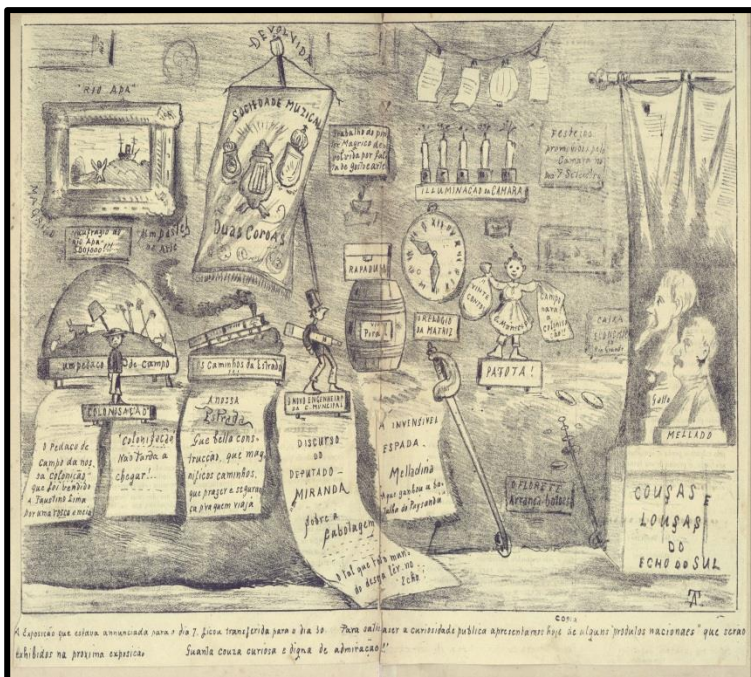 DEVOLVIDA
"RIO APA"
SOCIEDADE MUZICAL
DUAS COROAS
Naufragio do
rio Apa
Um Pastel
na Arte
Trabalho do pin
tor Magrico de
volvido por fal
ta de gosto e arte
ILLUMINAÇÃO DA CAMARA
Festejos
promovidos pela
Camara no
dia 7 Setembro
RAPADURA
Pira
O RELOGIO
DA MATRIZ
VINTE
CONTOS
Campo
para a
colonisa
ção!!
PATOTA!
CAIXA
Rio Grande
Um pedaço de campo
Os Caminhos da Estrada
COLONISAÇÃO
O NOVO ENGENHEIRO
DA C. MUNICIPAL
O Pedaço de
Campo da nos
sa Colonisão
que foi vendido
A Faustino Lima
Por uma rosca e meia
Colonisação
Não tarda a
chegar...
A nossa
Estrada
Que bella cons-
trucção, que mag
nificos caminhos,
que prazer e seguran
ça p'ra quem viaja
DISCURSO
DO
DEPUTADO
MIRANDA
sobre a
Cabotagem
O tal que tolo man
do despa ter no
Echo
A INVENSIVEL
ESPADA
Melladina
A que ganhou a ba
talha de Paysandú
O FLORETE
Arranca-botões
Gallo
MELLADO
COUSAS E
LOUSAS
DO
ECHO DO SUL
A Exposição que estava annunciada para o dia 7, ficou transferida para o dia 30. Para satisfaser a curiosidade publica apresentamos hoje copia de alguns "produtos nacionaes" que serao
exhibidos na proxima exposicao. Quanta couza curiosa e digna de admiração!!